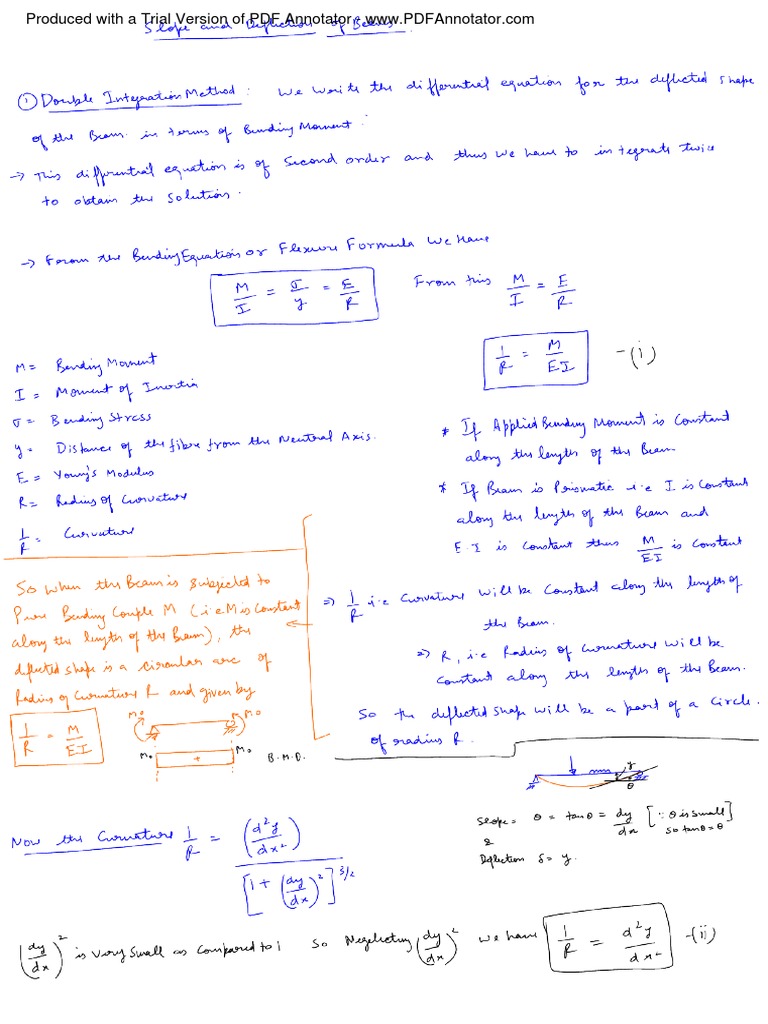 Produced with a Trial Version of PDF Annotator - www.PDFAnnotator.com
Slope and Deflection of Beams.
① Double Integration Method : We Write the differential equation for the deflected shape
of the Beam in terms of Bending Moment.
→ This differential equation is of Second order and thus we have to integrate twice
to obtain the Solution.
→ From the Bending Equation or Flexure Formula We Have
M/I = σ/y = E/R
From this M/I = E/R
1/R = M/EI - (i)
M = Bending Moment
I = Moment of Inertia
σ = Bending Stress
y = Distance of the fibre from the Neutral Axis.
E = Young's Modulus
R = Radius of Curvature
1/R = Curvature
* If Applied Bending Moment is Constant
along the length of the Beam
* If Beam is Prismatic i.e I is Constant
along the length of the Beam and
E.I is constant thus M/EI is Constant
⇒ 1/R i.e Curvature Will be Constant along the length of
the Beam.
⇒ R, i.e Radius of Curvature Will be
Constant along the length of the Beam.
So the deflected Shape Will be a part of a Circle.
of radius R.
So when the Beam is Subjected to
Pure Bending Couple M (i.e M is Constant
along the length of the Beam), the
deflected shape is a Circular arc of
Radius of Curvature R and given by
1/R = M/EI
Mo Mo
Mo + Mo B.M.D.
y
θ
Slope = θ = tanθ = dy/dx [∵ θ is small so tanθ = θ]
&
Deflection δ = y.
Now the Curvature 1/R = (d²y/dx²) / [1 + (dy/dx)²]^3/2
(dy/dx)² is Very Small as Compared to 1 So Neglecting (dy/dx)² we have 1/R = d²y/dx² - (ii)